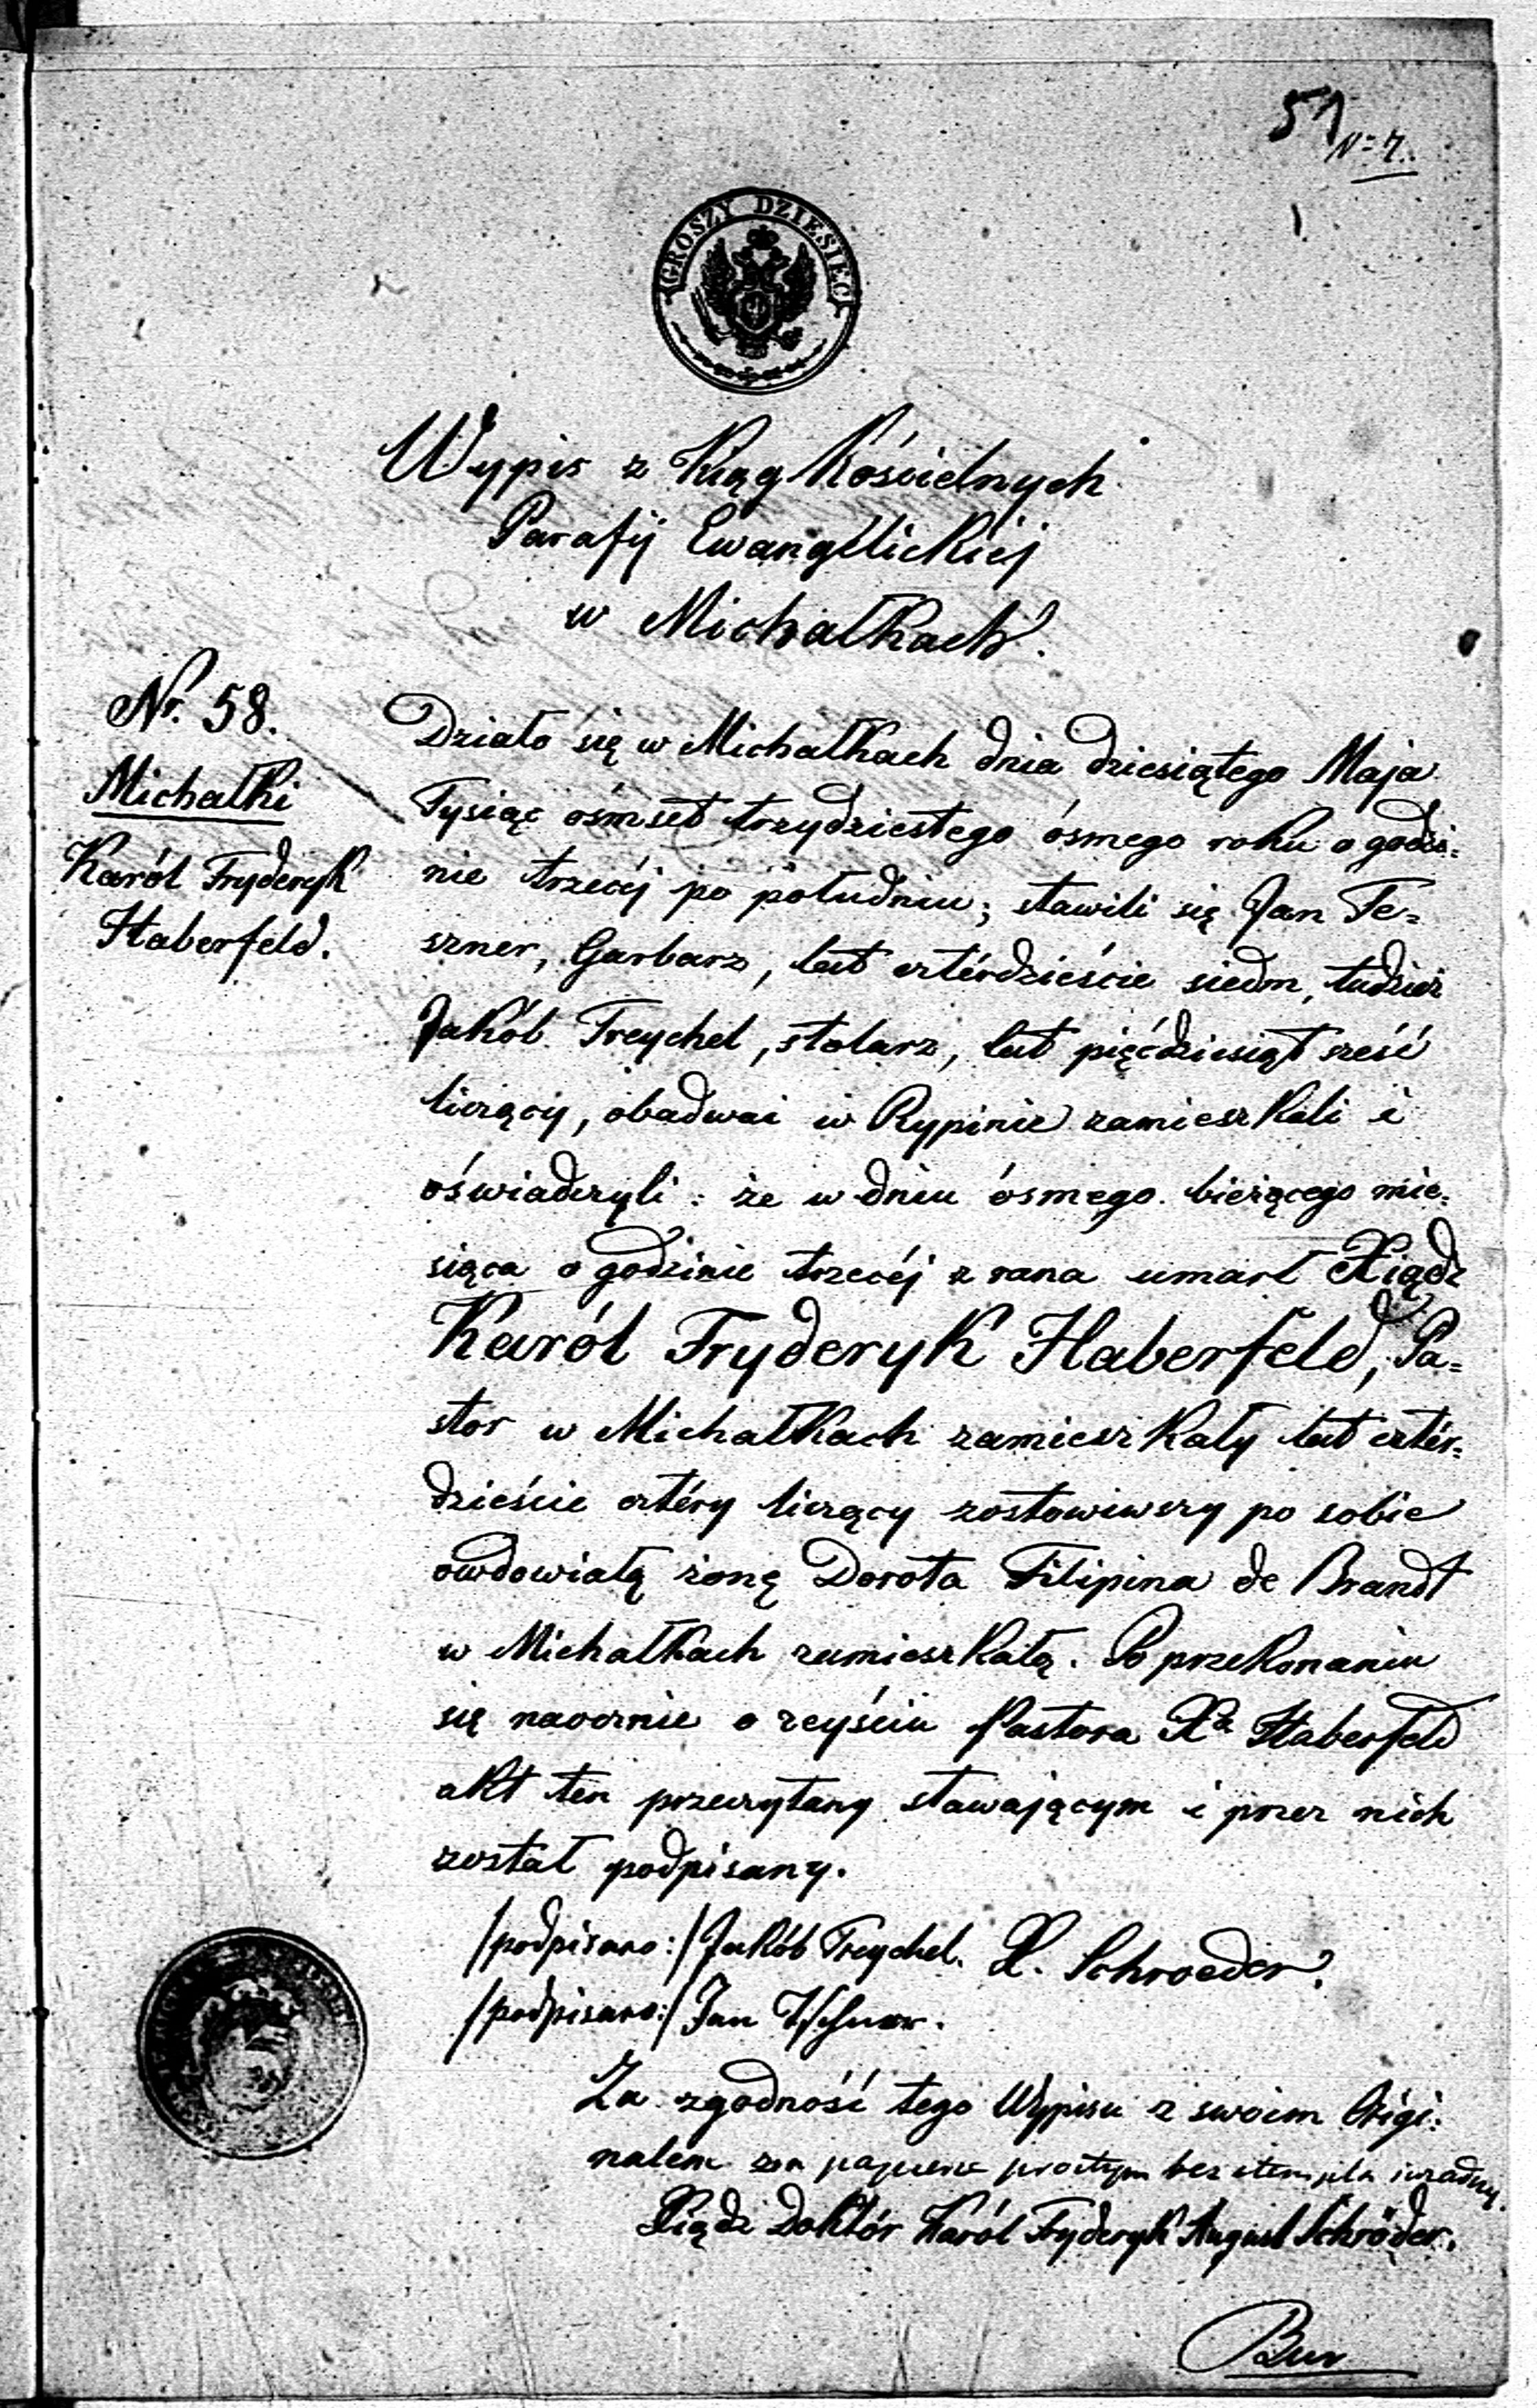 51
N=7.
GROSZY DZIESIĘĆ
Wypis z Ksiąg Kościelnych
Parafij Ewangelickiej
w Michałkach.
Nr. 58.
Michałki
Karól Fryderyk
Haberfeld.
Działo się w Michałkach dnia dziesiątego Maja
Tysiąc óśmset trzydziestego ósmego roku o godzi=
nie trzeciéj po południu; stawili się Jan Te=
szner, Garbarz, lat cztérdzieście siedm, tudzież
Jakób Treychel, stolarz, lat pięćdziesiąt sześć
liczący, obadwai w Rypinie zamieszkali i
oświadczyli: że w dniu ósmego bieżącego mie=
siąca o godzinie trzeciéj z rana umarł Xiądz
Karól Fryderyk Haberfeld, Pa=
stor w Michałkach zamieszkały lat cztér=
dzieście cztéry liczący zostowiwszy po sobie
owdowiałą żonę Dorota Filipina de Brandt
w Michałkach zamieszkałą. Po przekonaniu
się naocznie o zeyściu Pastora Xa Haberfeld
akt ten przeczytany stawającym i przez nich
został podpisany.
/podpisano:/ Jakób Treychel. X. Schroeder.
/podpisano:/ Jan
Za zgodność tego Wypisu z swoim Origi=
nałem na papierze prostym bez stempla
Xiądz Doktór Karól Fryderyk August Schröder.